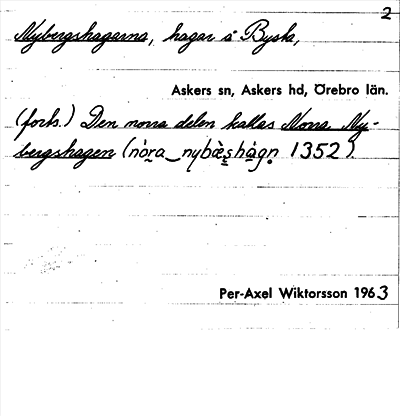 2
Nybergshagarna, hagar å Bysta,
Askers sn, Askers hd, Örebro län.
(forts.) Den norra delen kallas Norra Ny-
bergshagen (nòra_nybæ̀ṣhàgn̥ 1352).
Per-Axel Wiktorsson 1963